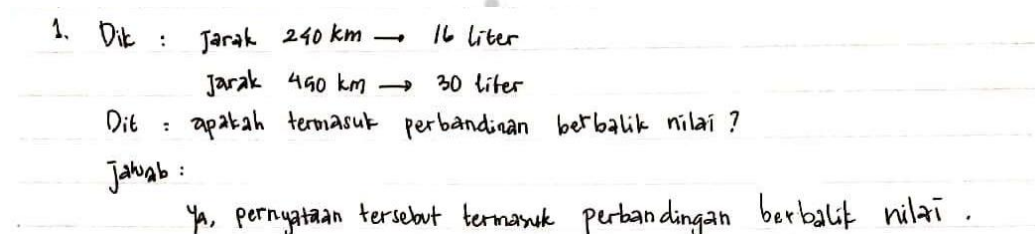 1. Dik : Jarak 240 km → 16 liter
Jarak 450 km → 30 liter
Dit : apakah termasuk perbandinan berbalik nilai ?
Jawab :
Ya, pernyataan tersebut termasuk perbandingan berbalik nilai .